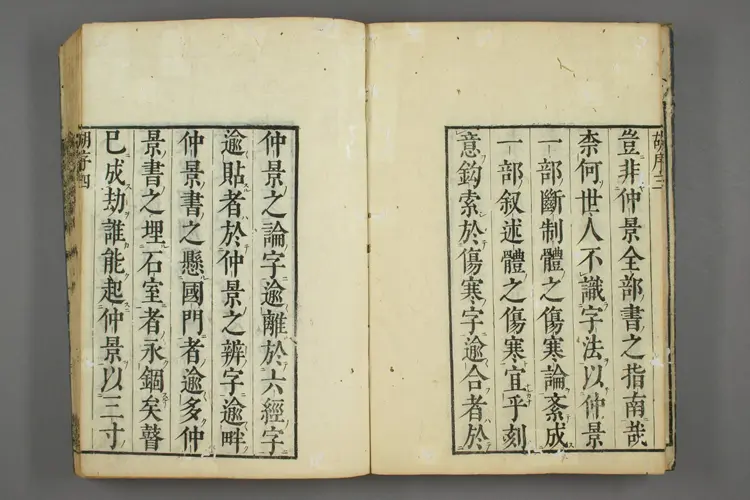 胡序三
豈非仲景全部書之指南哉
柰何世人不識字法以仲景
一部斷制體之傷寒論紊成
一部叙述體之傷寒宜乎刻
意鈎索於傷寒字逾合者於
仲景之論字逾離於六經字
逾貼者於仲景之辨字逾畔
仲景書之懸國門者逾多仲
景書之埋石室者永錮矣瞽
已成劫誰能起仲景以三寸
胡序四